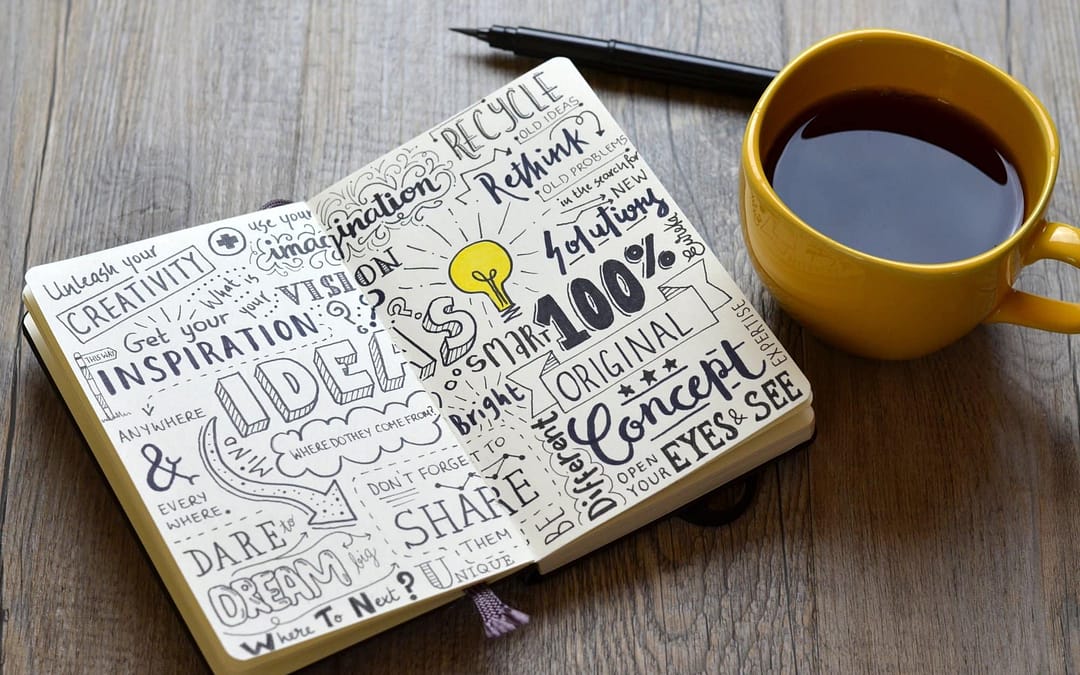 Unleash your
CREATIVITY
use your
imagination
What is
your VISION
?
Get your
INSPIRATION
THIS WAY
IDEAS
ANYWHERE
&
EVERY
WHERE.
MIND
WHERE DO THEY COME FROM?
DON'T FORGET TO
SHARE
THEM
DARE to
DREAM big
Where To Next?
BE UNIQUE
RECYCLE
OLD IDEAS
Rethink
OLD PROBLEMS
in the search for
NEW
Solutions
eureka
SMART
100%
ORIGINAL
Bright
Concept
EXPERTISE
Different
OPEN
YOUR EYES & SEE